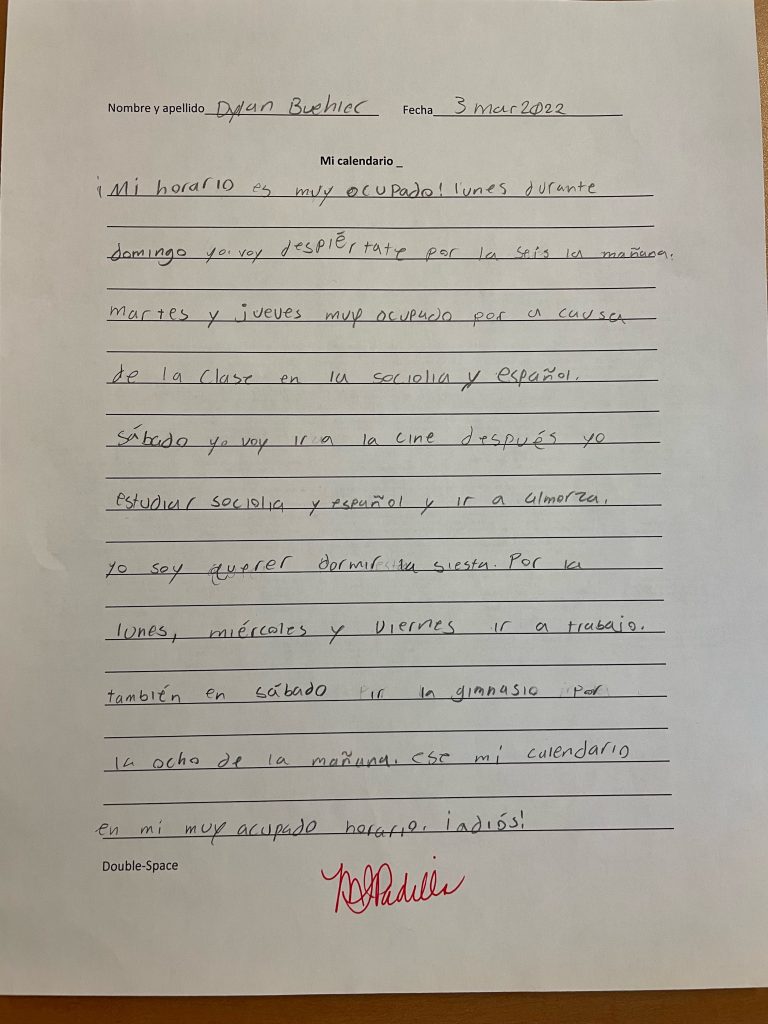 Nombre y apellido Dylan Buehler Fecha 3 mar 2022
Mi calendario _
¡Mi horario es muy ocupado! lunes durante
domingo yo voy despiértate por la seis la mañana.
martes y jueves muy ocupado por a causa
de la clase en la sociolia y español.
sábado yo voy ir a la cine después yo
estudiar sociolia y español y ir a almorza.
yo soy querer dormir la siesta. Por la
lunes, miércoles y viernes ir a trabajo.
también en sábado ir la gimnasio por
la ocho de la mañana. ese mi calendario
en mi muy acupado horario. ¡adiós!
Double-Space
Padilla